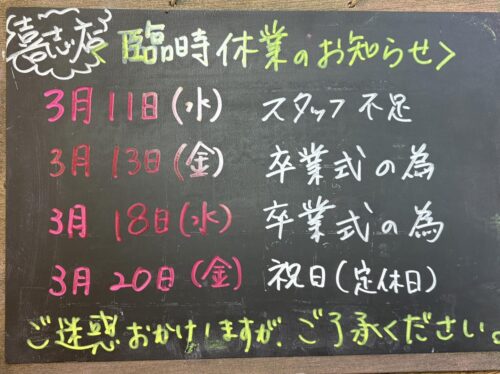 喜志店
<臨時休業のお知らせ>
3月11日(水) スタッフ不足
3月13日(金) 卒業式の為
3月18日(水) 卒業式の為
3月20日(金) 祝日(定休日)
ご迷惑おかけしますが、ご了承ください。